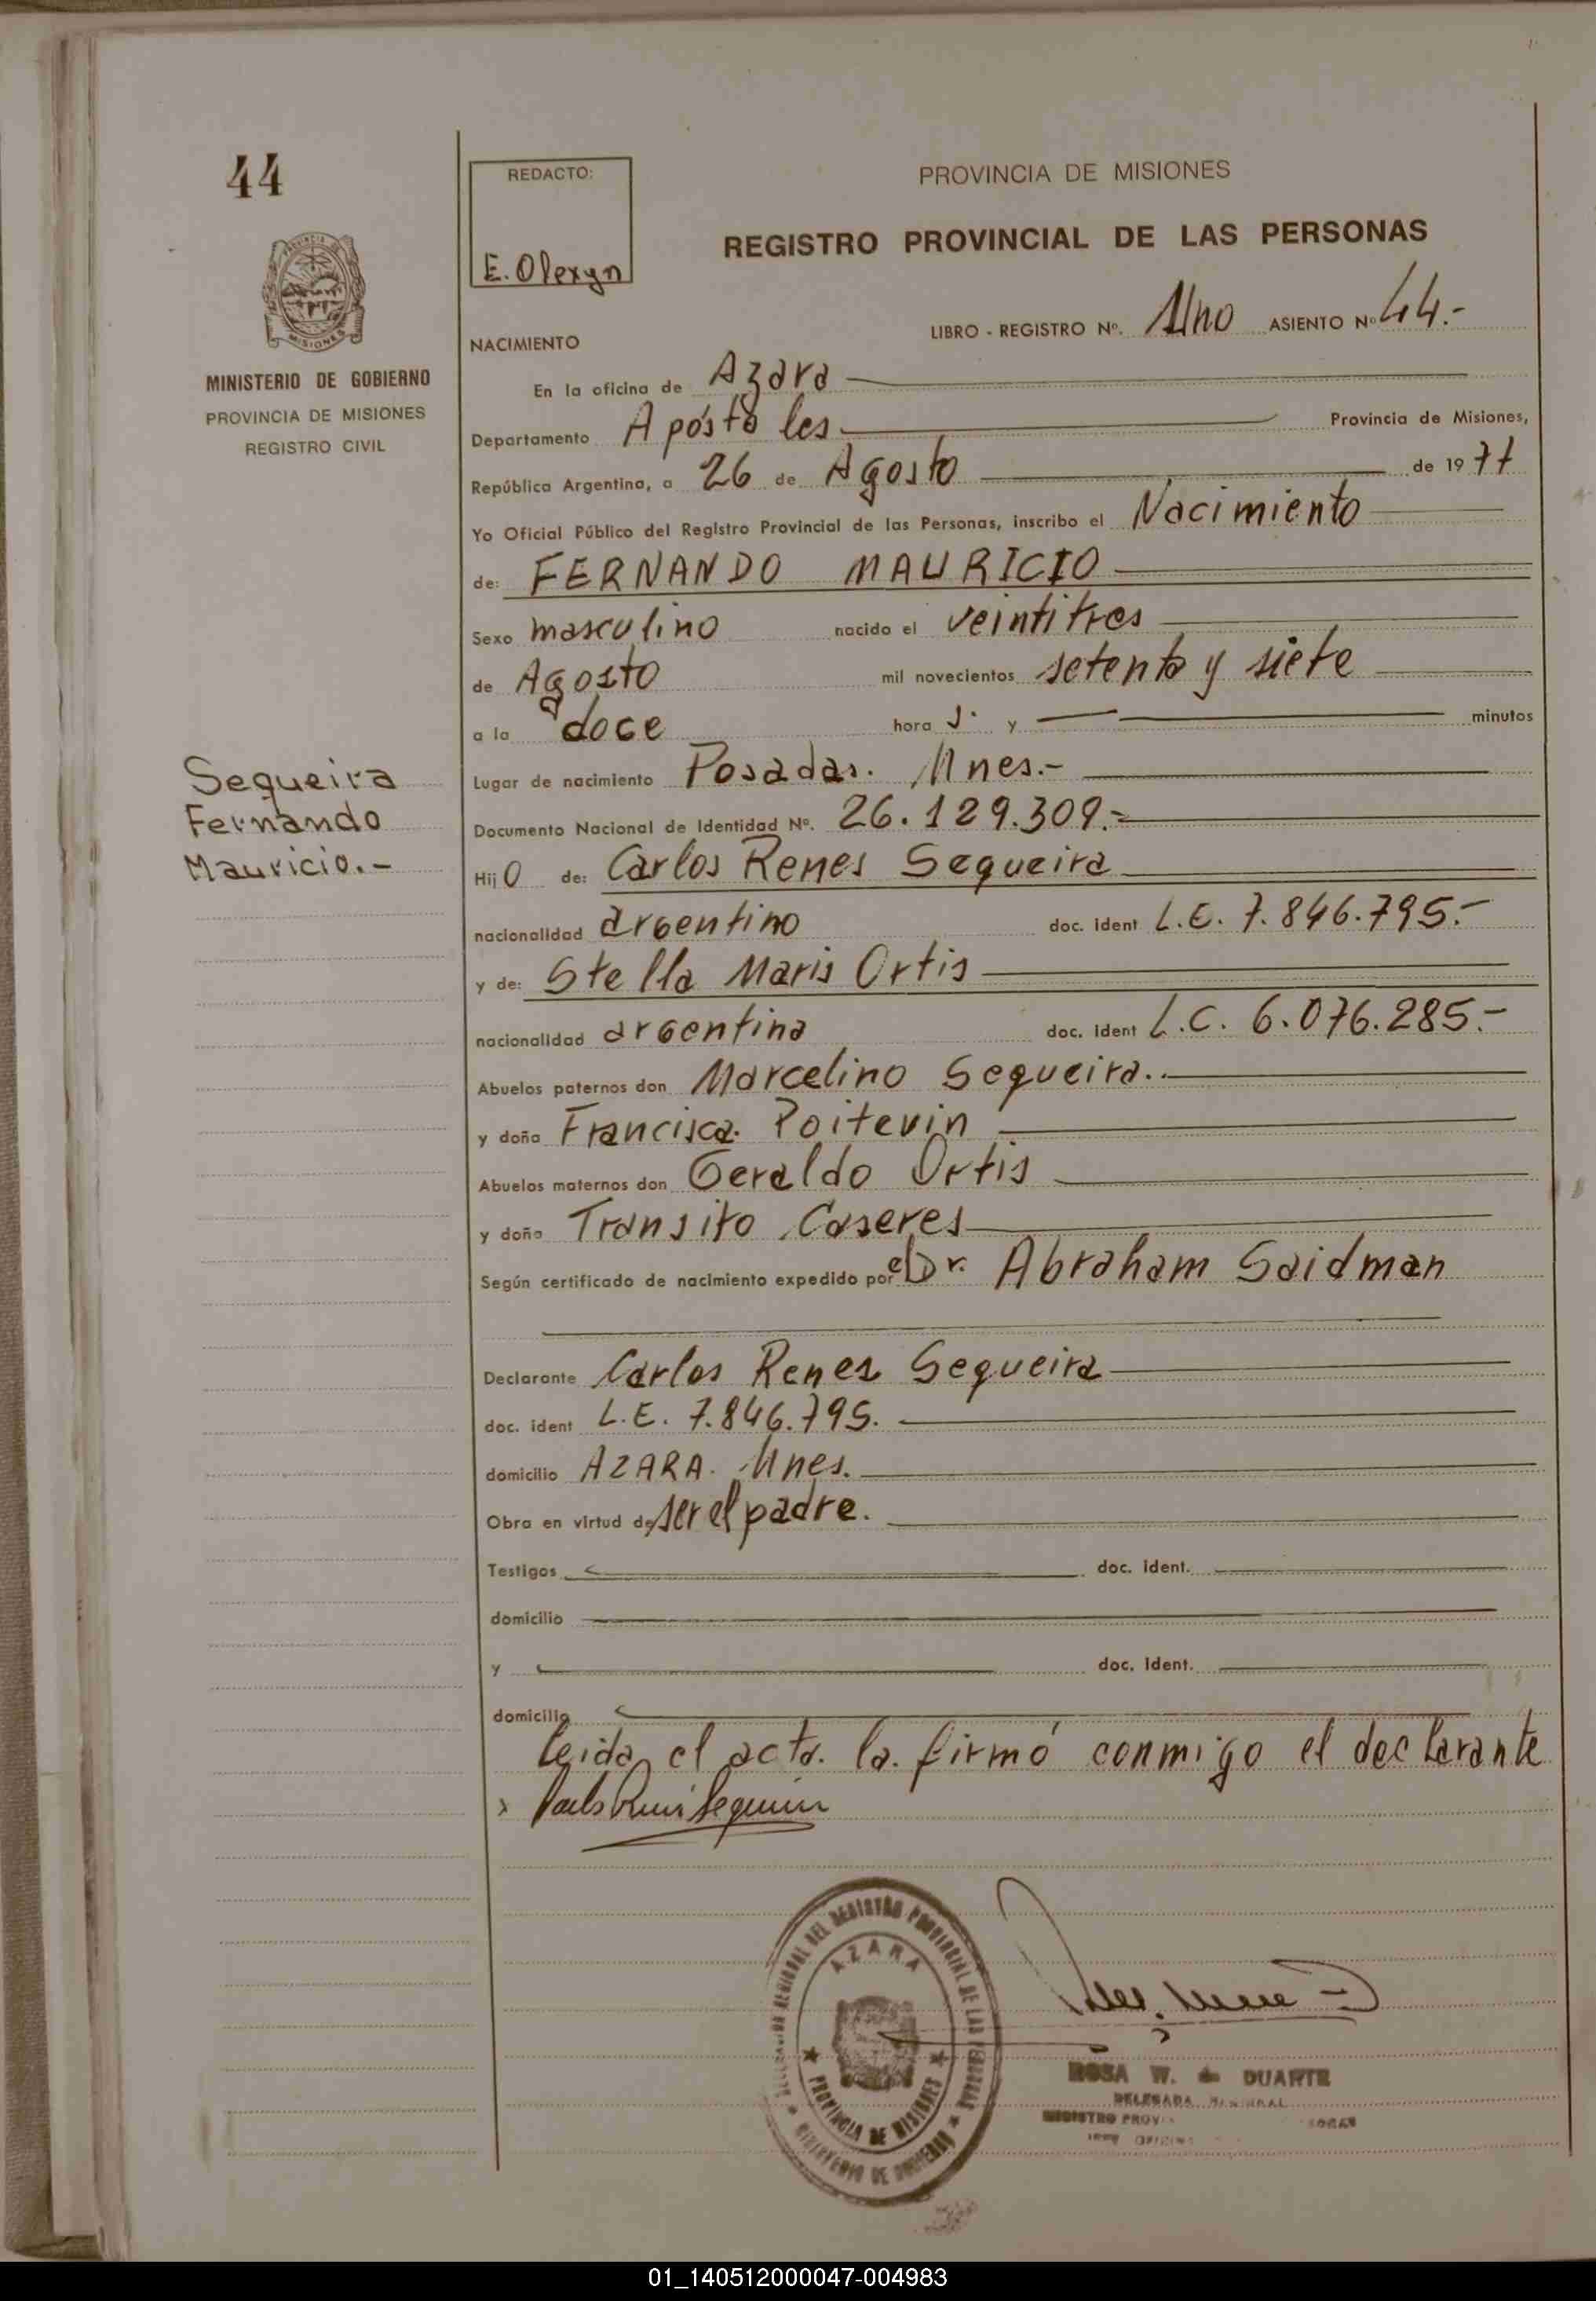 44
REDACTO:
E. Olexyn
PROVINCIA DE MISIONES
REGISTRO PROVINCIAL DE LAS PERSONAS
MISIONES
MINISTERIO DE GOBIERNO
PROVINCIA DE MISIONES
REGISTRO CIVIL
LIBRO - REGISTRO Nº. Uno ASIENTO Nº 44.-
NACIMIENTO
En la oficina de Azara
Departamento Apóstoles Provincia de Misiones,
República Argentina, a 26 de Agosto de 1977
Yo Oficial Público del Registro Provincial de las Personas, inscribo el Nacimiento
de: FERNANDO MAURICIO
Sexo masculino nacido el veintitres
de Agosto mil novecientos setenta y siete
a la doce hora s. y minutos
Lugar de nacimiento Posadas. Mnes.-
Documento Nacional de Identidad Nº. 26.129.309.-
Sequeira
Fernando
Mauricio.-
Hijo de: Carlos Renes Sequeira
nacionalidad argentino doc. ident L.E. 7.846.795.-
y de: Stella Maris Ortis
nacionalidad argentina doc. ident L.C. 6.076.285.-
Abuelos paternos don Marcelino Sequeira..
y doña Francisca. Poitevin
Abuelos maternos don Geraldo Ortis
y doña Transito Caseres
Según certificado de nacimiento expedido por el Dr. Abraham Saidman
Declarante Carlos Renes Sequeira
doc. ident L.E. 7.846.795.
domicilio AZARA. Mnes.
Obra en virtud de ser el padre.
Testigos doc. ident.
domicilio
y doc. ident.
domicilio
Leida el acta. la. firmó conmigo el declarante
DEL REGISTRO PROVINCIAL DE LAS PERSONAS
AZARA
PROVINCIA DE MISIONES
MINISTERIO DE GOBIERNO
ROSA W. de DUARTE
DELEGADA
REGISTRO PROV.
01_140512000047-004983